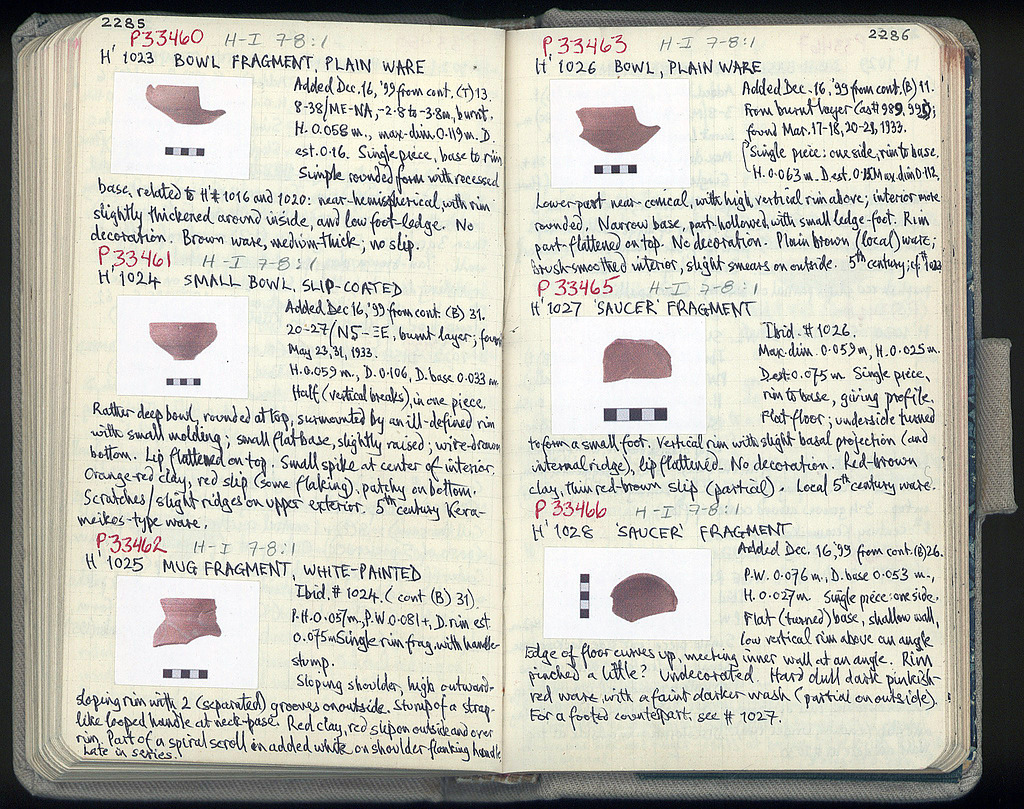 2285
P33460 H-I 7-8:1
H' 1023 BOWL FRAGMENT, PLAIN WARE
Added Dec. 16, '99 from cont. (T) 13.
8-38/ME-NA, -2.8 to -3.8m, burnt.
H. 0.058 m., max-dim. 0.119 m. D.
est. 0.16. Single piece, base to rim
Simple rounded form with recessed
base, related to H' # 1016 and 1020: near-hemispherical, with rim
slightly thickened around inside, and low foot-ledge. No
decoration. Brown ware, medium-thick; no slip.
P33461 H-I 7-8:1
H' 1024 SMALL BOWL, SLIP-COATED
Added Dec 16, '99 from cont. (B) 31.
20-27/ burnt layer; found
May 23, 31, 1933.
H. 0.059 m., D. 0.106, D. base 0.033 m.
Half (vertical breaks), in one piece.
Rather deep bowl, rounded at top, surmounted by an ill-defined rim
with small molding; small flat base, slightly raised; wire-drawn
bottom. Lip flattened on top. Small spike at center of interior.
Orange-red clay, red slip (some flaking), patchy on bottom.
Scratches/slight ridges on upper exterior. 5th century Kera-
meikos-type ware.
P33462 H-I 7-8:1
H' 1025 MUG FRAGMENT, WHITE-PAINTED
Ibid. # 1024. (cont (B) 31).
P.H. 0.057 m., P.W 0.081+, D. rim est.
0.075m Single rim frag. with handle-
stump.
Sloping shoulder, high outward-
sloping rim with 2 (separated) grooves on outside. Stump of a strap-
like looped handle at neck-base. Red clay, red slip on outside and over
rim. Part of a spiral scroll in added white on shoulder flanking handle
Late in series.
2286
P33463 H-I 7-8:1
H' 1026 BOWL, PLAIN WARE
Added Dec. 16, '99 from cont. (B) 11.
From burnt layer (as # 989, 995);
found Mar. 17-18, 20-28, 1933.
Single piece: one side, rim to base.
H. 0.063 m. D est. Max dim 0.112.
Lower part near-conical, with high vertical rim above; interior more
rounded. Narrow base, part-hollowed, with small ledge-foot. Rim
part-flattened on top. No decoration. Plain brown (local) ware;
brush-smoothed interior, slight smears on outside. 5th century; cf. # 1023
P33465 H-I 7-8:1
H' 1027 'SAUCER' FRAGMENT
Ibid. # 1026.
Max. dim. 0.059 m, H. 0.025 m.
D. est 0.075 m. Single piece,
rim to base, giving profile.
Flat floor; underside turned
to form a small foot. Vertical rim with slight basal projection (and
internal ridge), lip flattened. No decoration. Red-brown
clay, thin red-brown slip (partial). Local 5th century ware.
P33466 H-I 7-8:1
H' 1028 'SAUCER' FRAGMENT
Added Dec. 16, '99 from cont. (B) 26.
P.W. 0.076 m., D. base 0.053 m.,
H. 0.027 m. Single piece: one side.
Flat (turned) base, shallow wall,
low vertical rim above an angle
Edge of floor curves up, meeting inner wall at an angle. Rim
pinched a little? Undecorated. Hard dull dark pinkish-
red ware, with a faint darker wash (partial on outside).
For a footed counterpart, see # 1027.